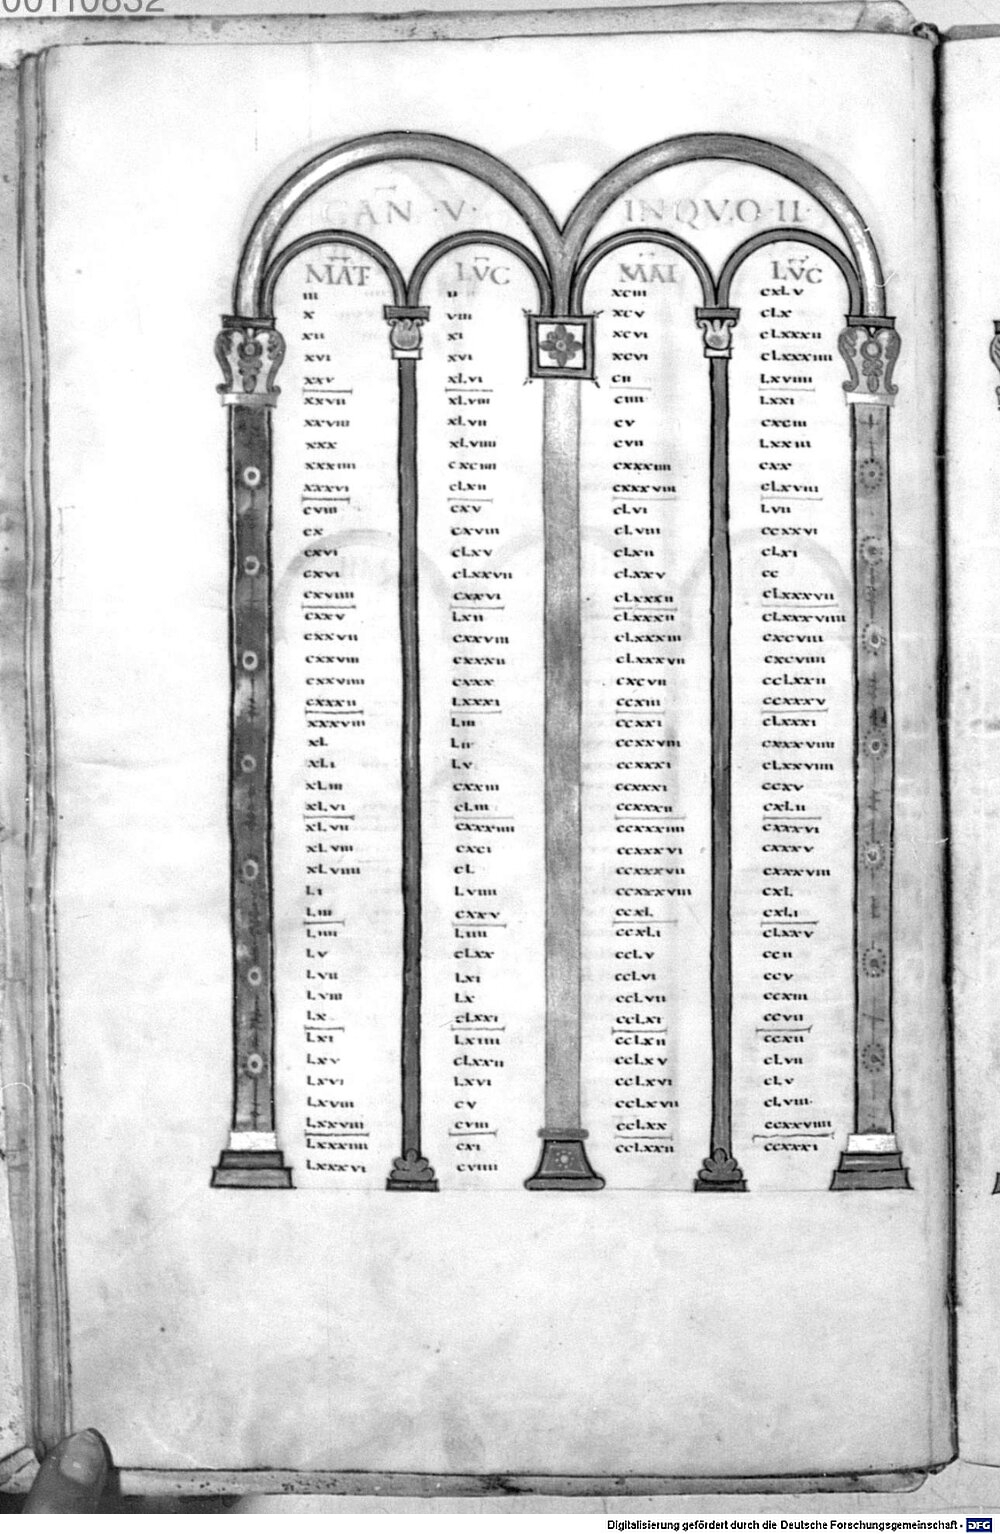 00110832
CAN̄ · V ·
IN QVO · II ·
MAT
LVC
MAT
LVC
III II XCIII CXLV
X VIII XCV CLX
XII XI XCVI CLXXXII
XVI XVI XCVI CLXXXIIII
XXV XLVI CII LXVIIII
XXVII XLVIII CIIII LXXI
XXVIII XLVII CV CXCIII
XXX XLVIIII CVII LXXIII
XXXIIII CXCIIII CXXXIIII CXX
XXXVI CLXII CXXXVIII CLXVIII
CVIII CXV CLVI LVII
CX CXVIII CLVIII CCXXVI
CXVI CLXV CLXII CLXI
CXVI CLXXVII CLXXV CC
CXVIIII CXXVI CLXXXII CLXXXVII
CXXV LXII CLXXXII CLXXXVIIII
CXXVII CXXVIII CLXXXIII CXCVIII
CXXVIII CXXXII CLXXXVII CXCVIIII
CXXVIIII CXXX CXCVII CCLXXII
CXXXII LXXXI CCXIII CCXXXV
XXXVIII LIII CCXXI CLXXXI
XL LII CCXXVIII CXXXVIIII
XLI LV CCXXXI CLXXVIIII
XLIII CXXIII CCXXXI CCXV
XLVI CLIII CCXXXII CXLII
XLVII CXXXIIII CCXXXIIII CXXXVI
XLVIII CXCI CCXXXVI CXXXV
XLVIIII CL CCXXXVII CXXXVIII
LI LVIIII CCXXXVIII CXL
LIII CXXV CCXL CXLI
LIIII LIIII CCXLI CLXXV
LV CLXX CCLV CCII
LVII LXI CCLVI CCV
LVIII LX CCLVII CCXIII
LX CLXXI CCLXI CCVII
LXI LXIIII CCLXII CCXII
LXV CLXXII CCLXV CLVII
LXVI LXVI CCLXVI CLV
LXVIII CV CCLXVII CLVIII
LXXVIII CVIII CCLXX CCXXVIIII
LXXXIIII CXI CCLXXII CCXXXI
LXXXVI CVIIII
Digitalisierung gefördert durch die Deutsche Forschungsgemeinschaft - DFG